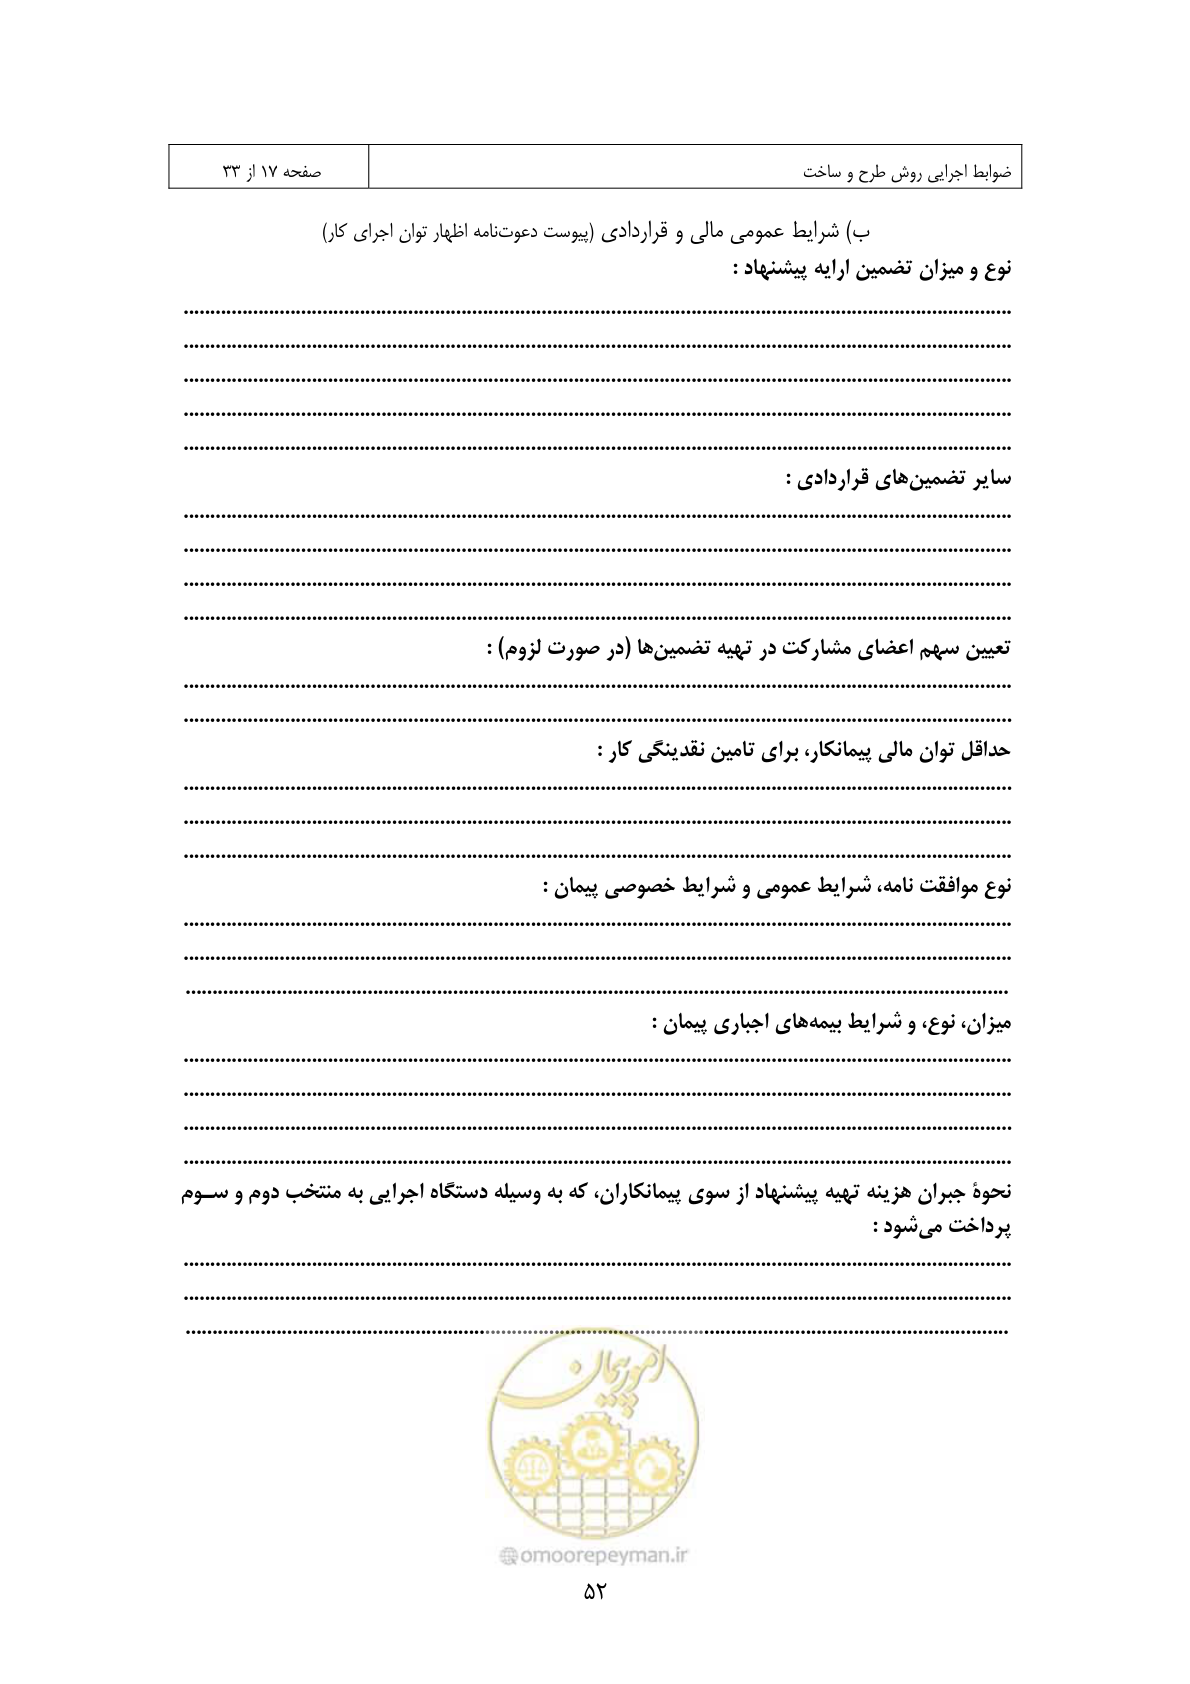 ضوابط اجرایی روش طرح و ساخت
صفحه ۱۷ از ۳۳
ب) شرایط عمومی مالی و قراردادی (پیوست دعوت‌نامه اظهار توان اجرای کار)
نوع و میزان تضمین ارایه پیشنهاد :
سایر تضمین‌های قراردادی :
تعیین سهم اعضای مشارکت در تهیه تضمین‌ها (در صورت لزوم) :
حداقل توان مالی پیمانکار، برای تامین نقدینگی کار :
نوع موافقت نامه، شرایط عمومی و شرایط خصوصی پیمان :
میزان، نوع، و شرایط بیمه‌های اجباری پیمان :
نحوۀ جبران هزینه تهیه پیشنهاد از سوی پیمانکاران، که به وسیله دستگاه اجرایی به منتخب دوم و ســوم
پرداخت می‌شود :
امور پیمان
@omoorepeyman.ir
۵۲